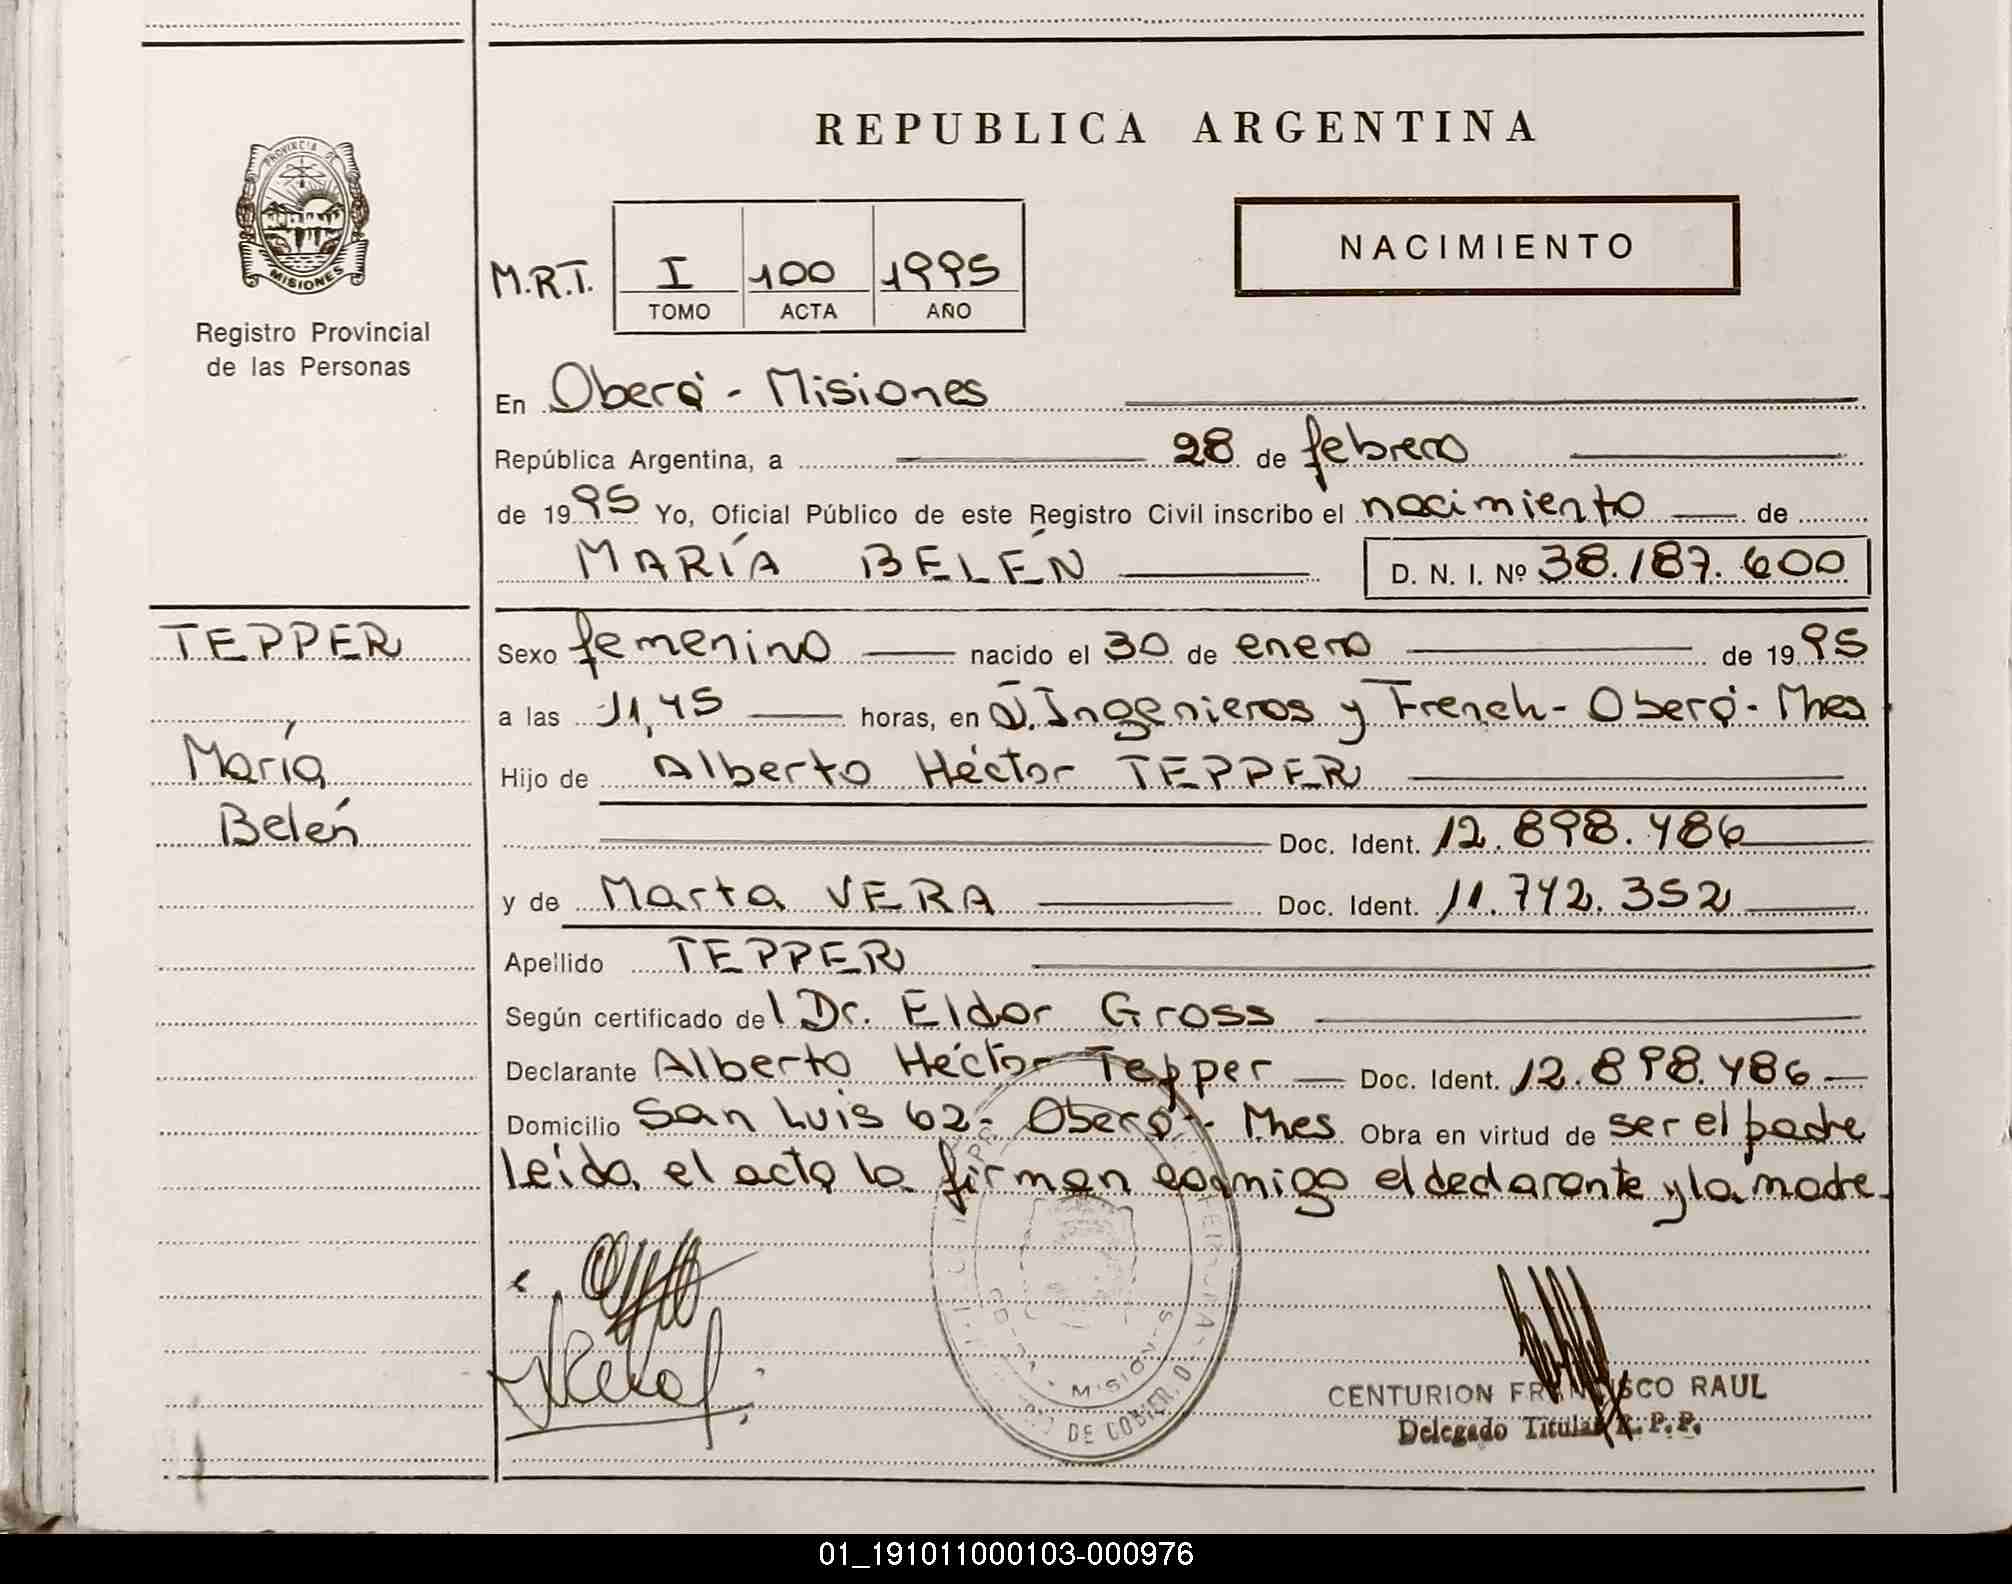 REPUBLICA ARGENTINA
PROVINCIA DE
MISIONES
Registro Provincial
de las Personas
NACIMIENTO
M.R.T. I 100 1995
TOMO ACTA AÑO
En Oberá - Misiones
República Argentina, a 28 de febrero
de 1995 Yo, Oficial Público de este Registro Civil inscribo el nacimiento de
MARÍA BELÉN D. N. I. Nº 38.187.600
TEPPER
María
Belén
Sexo femenino nacido el 30 de enero de 1995
a las 11,45 horas, en J. Ingenieros y French - Oberá - Mnes
Hijo de Alberto Héctor TEPPER
Doc. Ident. 12.898.486
y de Marta VERA Doc. Ident. 11.742.352
Apellido TEPPER
Según certificado del Dr. Eldor Gross
Declarante Alberto Héctor Tepper Doc. Ident. 12.898.486
Domicilio San Luis 62 - Oberá - Mnes Obra en virtud de ser el padre
Leída el acta la firman conmigo el declarante y la madre
MISIONES
DE GOBIERNO
CENTURION FRANCISCO RAUL
Delegado Titular R. P. P.
01_191011000103-000976